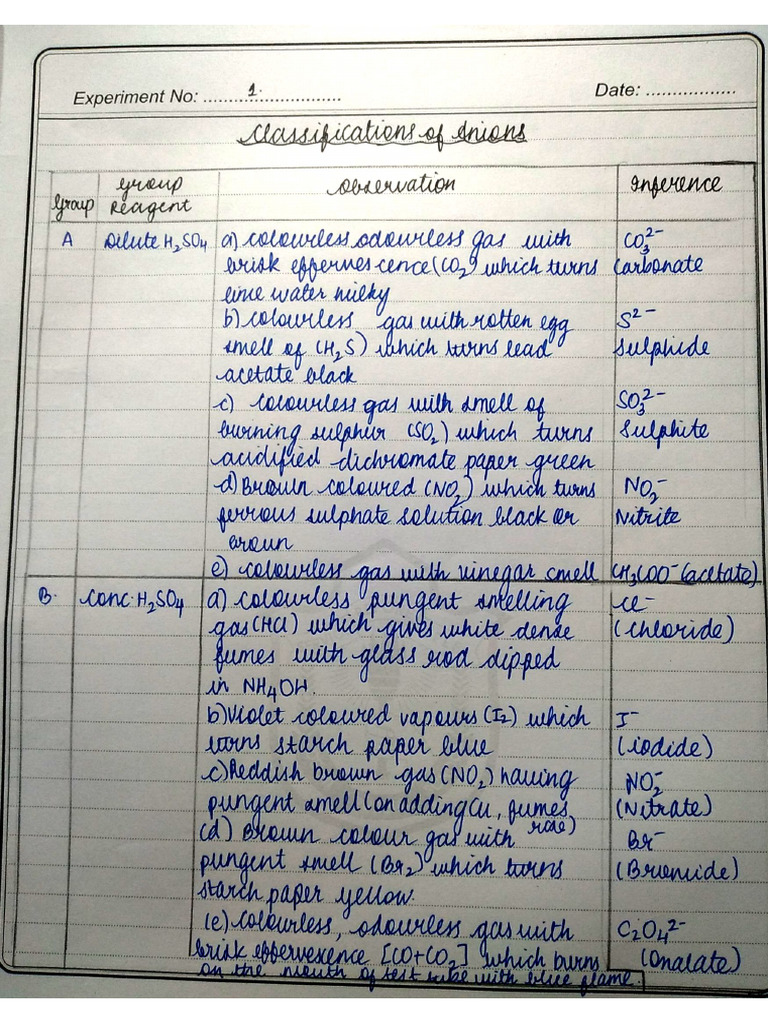 Experiment No: ............1.............. Date: .................
Classifications of Anions
Group Group Reagent Observation Inference
A Dilute H₂SO₄ a) colourless odourless gas with CO₃²⁻
brisk effernescence (CO₂) which turns Carbonate
lime water milky
b) colourless gas with rotten egg S²⁻
smell of (H₂S) which turns lead Sulphide
acetate black
c) colourless gas with smell of SO₃²⁻
burning sulphur (SO₂) which turns Sulphite
acidified dichromate paper green
d) Brown coloured (NO₂) which turns NO₂⁻
ferrous sulphate solution black or Nitrite
broun
e) colourless gas with vinegar smell CH₃COO⁻ (acetate)
B. Conc. H₂SO₄ a) colourless pungent smelling Cl⁻
gas (HCl) which gives white dense (chloride)
fumes with glass rod dipped
in NH₄OH.
b) Violet coloured vapours (I₂) which I⁻
turns starch paper blue (iodide)
c) Reddish brown gas (NO₂) having NO₂⁻
pungent smell (on adding Cu, fumes rose) (Nitrate)
(d) Brown colour gas with Br⁻
pungent smell (Br₂) which turns (Bromide)
starch paper yellow.
(e) colourless, odourless gas with C₂O₄²⁻
brisk effervexence [CO+CO₂] which burns (Oxalate)
on the mouth of test tube with blue flame.